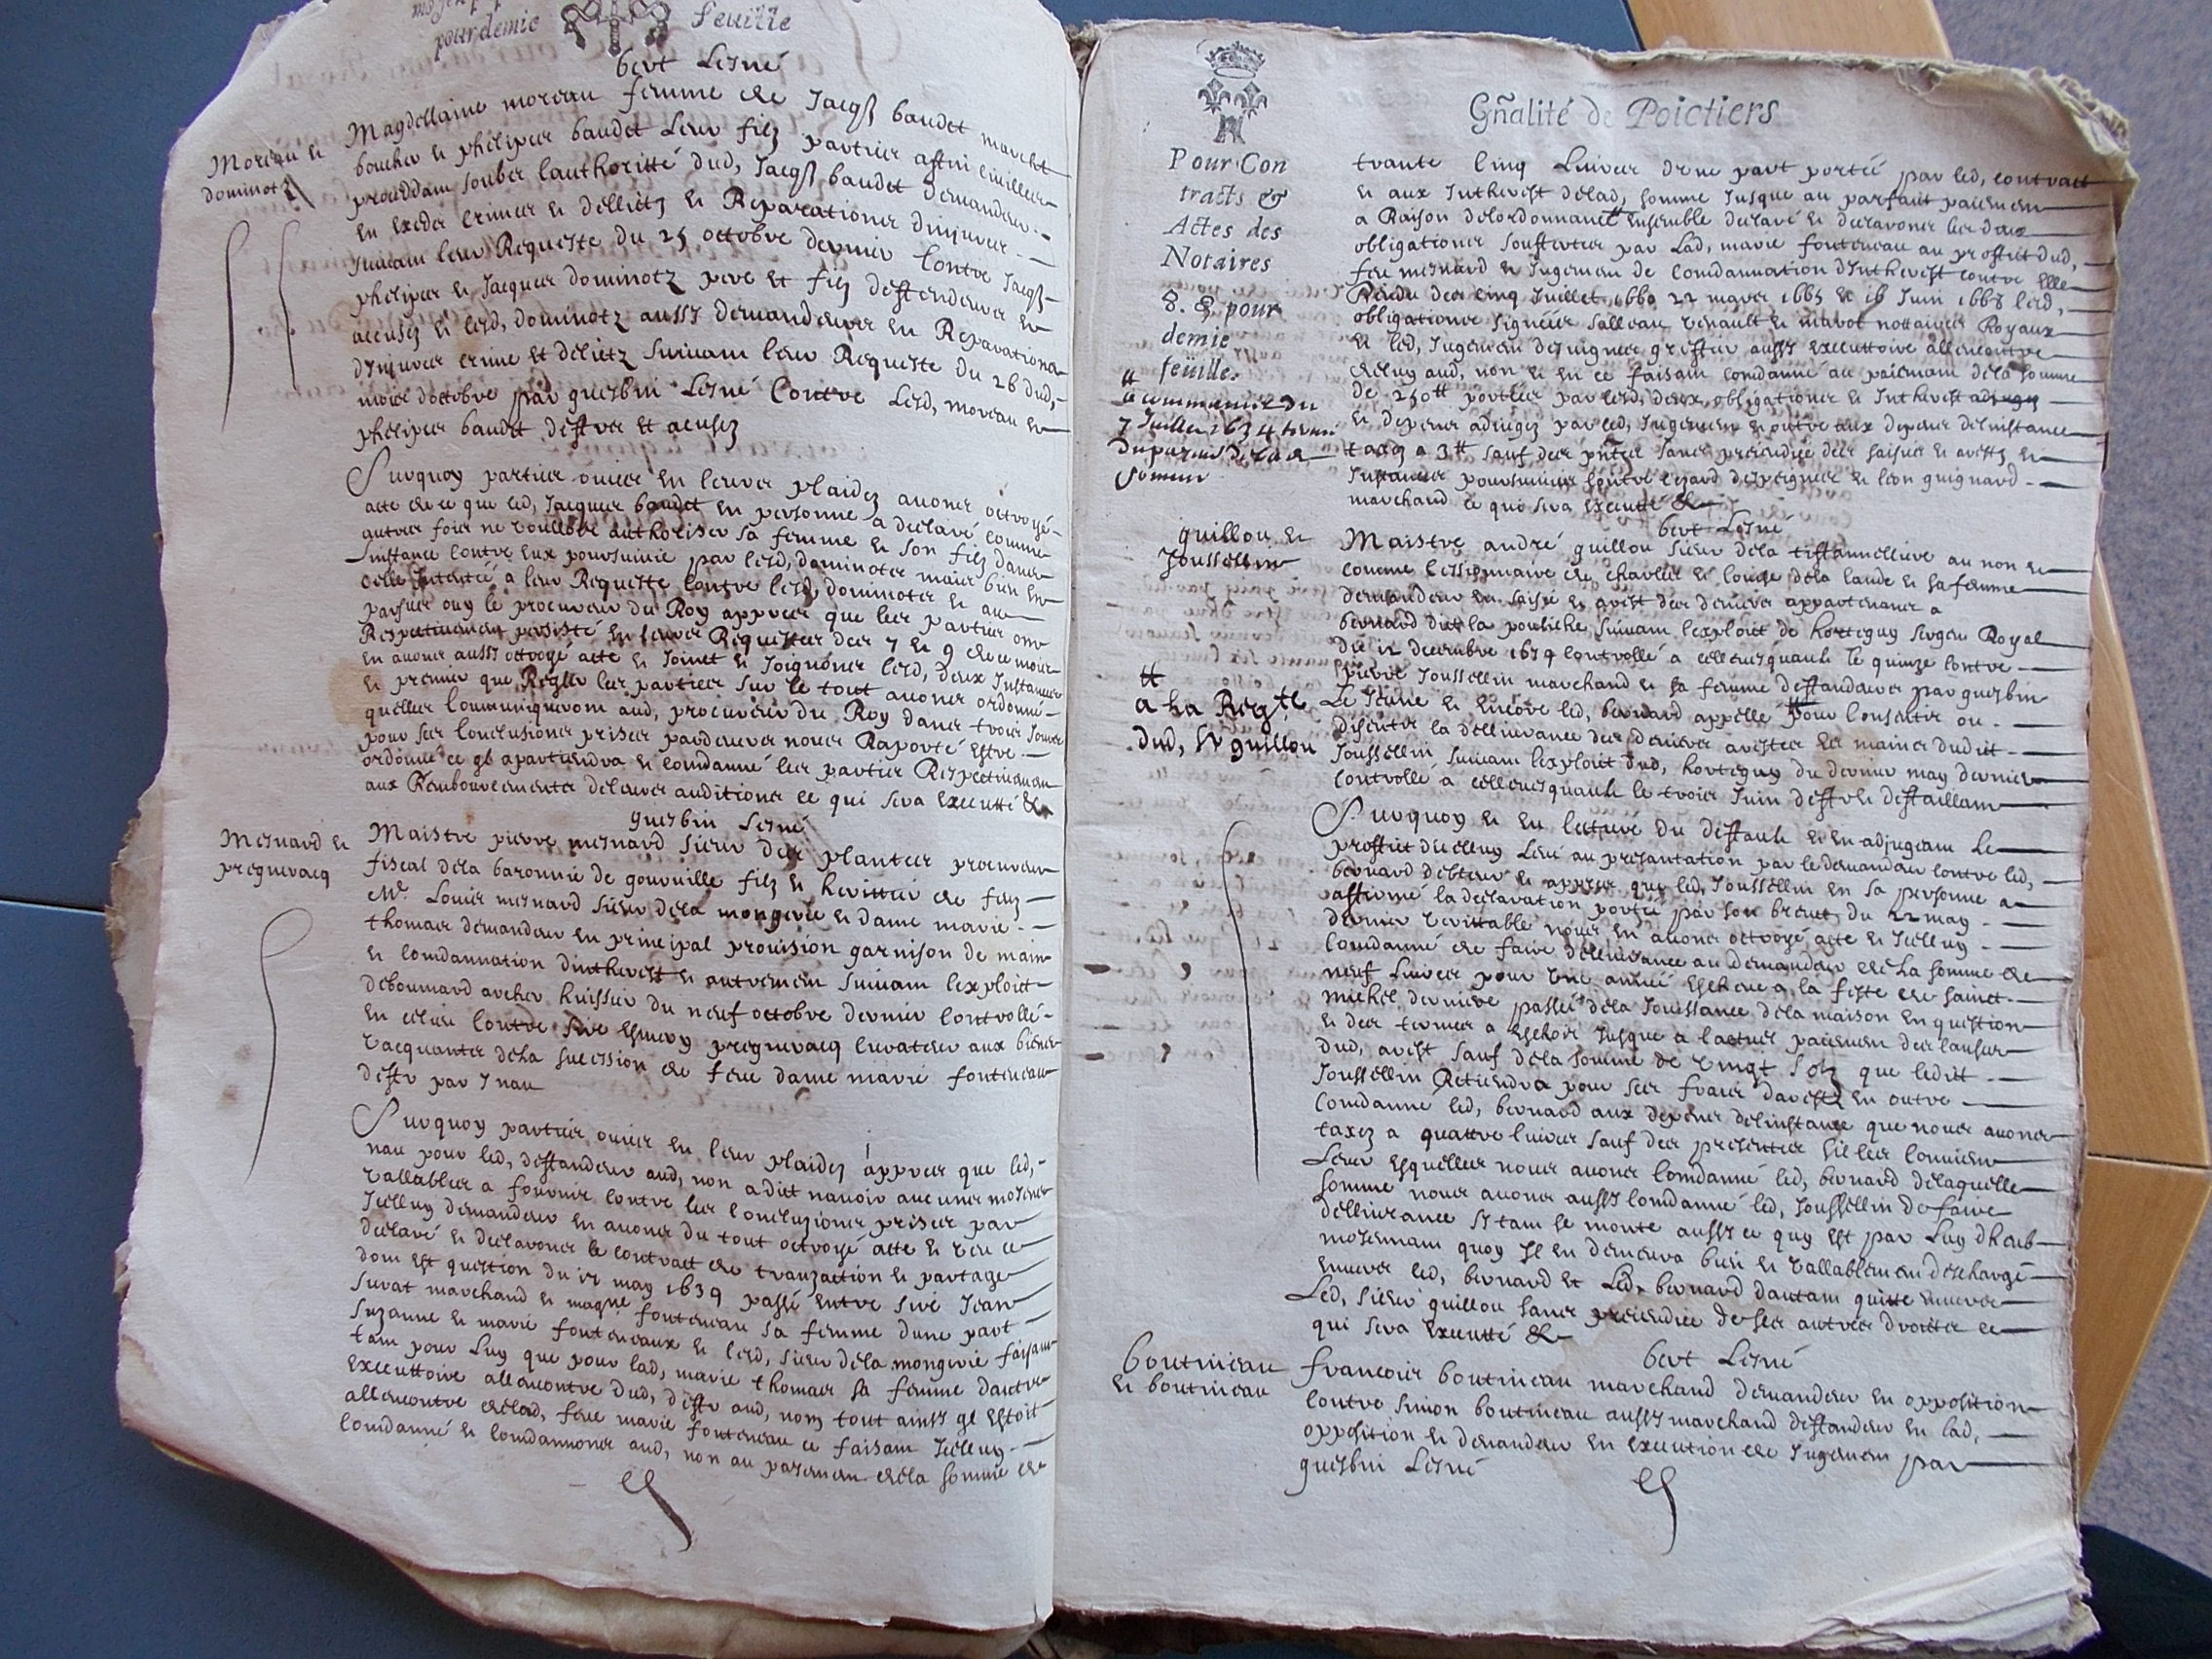 pour demie feuille
bert Lesné
Moreau et
dominotz
Magdellaine moreau femme de Jacqs baudet marchant
boucher et philipes baudet leur filz
proceddans soubz lauthoritté dud, Jacqs baudet demandeurs
en excedz crimes et dellictz et Reparationes dinjures
suivant leur Requeste du 25 octobre dernier contre Jacqs
philipes et Jacques dominotz pere et filz deffendeurs et
accusez et lesd, dominotz aussy demandeurs en Reparationes
dinjures crime et delictz suivant leur Requeste du 26 dud,
mois doctobre par guesbin Lesné Contre Lesd, moreau et
philipes baudet deffrs et acusez
Surquoy parties ouies en leurs plaidez avons octroyé
acte de ce que led, Jacques baudet en personne a declaré comme
autres fois ne voulloir authoriser sa femme et son filz dans
linstance contre eux poursuivie par lesd, dominotz mais bien en
celle Intentée a leur Requeste contre lesd, dominotz et au
parsus ouy le procureur du Roy appres que les parties ont
Respectivement persisté en leurs Requestes des 7 et 9 de ce mois
en avons aussy octroyé acte et Joinct et Joignons lesd, deux Instances
et premier que Regler les parties sur le tout avons ordonné
quelles communiqueront aud, procureur du Roy dans trois jours
pour ses conclusiones prises pardevers nous Raporté estre
ordonné ce qb apartiendra et condanné les parties Respectivement
aux Rembourcements de leurs auditiones ce qui sera executté &
guesbin Lesné
Mesnard et
pregnevacq
Maistre pierre mesnard sieur des plantes procureur
fiscal dela baronnie de gourville filz et herittier de feuz
Mr. Louis mesnard sieur dela mongerie et dame marie
thomas demandeur en principal provision garnison de main
et condannation dintherest et autrement suivant lexploict
deboumard archer huissier du neuf octobre dernier controllé
en contre sire pregnevacq curateur aux biens
vacquantes dela sucession de feue dame marie fonteneau
deffr par Inau
Surquoy parties ouies en leur plaidez appres que led,
nau pour led, deffandeur aud, non a dict navoir aucunes moyens
vallables a fournir contre les conclusiones prises par
Jcelluy demandeur en avons du tout octroyé acte et veu ce
declaré et declarons le contract de tranzaction et partage
dont est question du may 1639 passé entre sire Jean
Surat marchand et fonteneau sa femme dune part
Suzanne et marie fonteneaux et lesd, sieur dela mongerie faisant
tant pour luy que pour lad, marie thomas sa femme dautre
executtoire allencontre dud, deffr aud, nom tout ainsy ql estoit
allencontre delad, feue marie fonteneau ce faisant Jcelluy
condanné et condannons aud, non au payement dela somme de
Gñalité de Poictiers
Pour Con
tracts &
Actes des
Notaires
8. d. pour
demie
feüille.
trante cinq livres dune part portée par led, contract
et aux Intherest delad, somme jusque au parfaict paiement
a Raison delordonnance ensemble declaré et declarons les deux
obligationes soustes par lad, marie fonteneau au proffict dud,
feu mesnard et jugement de condannation dIntherest contre elle
Rendu des cinq Juillet 1660 22 mars 1665 et 16 Juin 1668 lesd,
obligationes signées Salleau Renault et marot nottaires Royaux
et led, jugement greffier aussy executtoire allencontre
dicelluy aud, non et en ce faisant condanné au paiement dela somme
de 250tt portées par lesd, deux obligationes et Intherest
et depens adjugez par led, Jugement et outre aux depens delinstance
taxez a 3tt sauf des pñtes sans prejudice des saisies et arestz et
Instances poursuivies contre et léon guignard
marchand ce qui sera executté &
a commancer du
7 Juillet 1634
bert Lesné
guillou et
Joussellin
Maistre andré guillou sieur dela tiffannelliere au non et
comme cessionnaire de charles et louise dela lande et sa femme
demandeur en saisie et arest des deniers appartenants a
bernard dit la pouche suivant lexploict de hortegny sergent Royal
du 12 decembre 1679 controllé a celle le quinze contre
pierre Joussellin marchand et sa femme deffandeurs par guesbin
Le Jeune et encore led, bernard appellé pour consentir ou
discuter la dellivrance des deniers arestez es mains dudit
Joussellin suivant lexploict dud, hortegny du dernier may dernier
controllé a celle le trois Juin deffr et deffaillant
a La Reqte
dud, Sr guillou
Surquoy et en lecture du deffault et en adjugeant Le
proffict dicelluy levé au presantation par le demandeur contre led,
bernard debteur et appres que led, Joussellin en sa personne a
affirmé la declaration portée par son brevet du 22 may
dernier verittable nous en avons octroyé acte et Jcelluy
condanné de faire dellivrance au demandeur dela somme de
neuf livres pour une année eschene a la feste de sainct
michel derniere passée dela Jouissance dela maison en question
et des termes a eschoir Jusque a lactuel paiement des causes
dud, arest sauf dela somme de vingt solz que ledit
Joussellin Retiendra pour ses fraicz darestz en outre
condanné led, bernard aux depens delinstance que nous avons
taxez a quattre livres sauf des presentes sil les convient
Lever esquelles nous avons condanné led, bernard delaquelle
somme nous avons aussy condanné led, Joussellin de faire
dellivrance sy tant se monte aussy ce quy est par Luy dheub
moiennant quoy Jl en demeura bien et vallablement deschargé
envers led, bernard et Led, bernard dautant quitte envers
Led, sieur guillou sans prejudice de ses autres droictz ce
qui sera executté &
bert Lesné
boutineau
et boutineau
francois boutineau marchand demandeur en opposition
contre simon boutineau aussy marchand deffandeur en lad,
opposition et demandeur en execution de Jugement par
guesbin Lesné